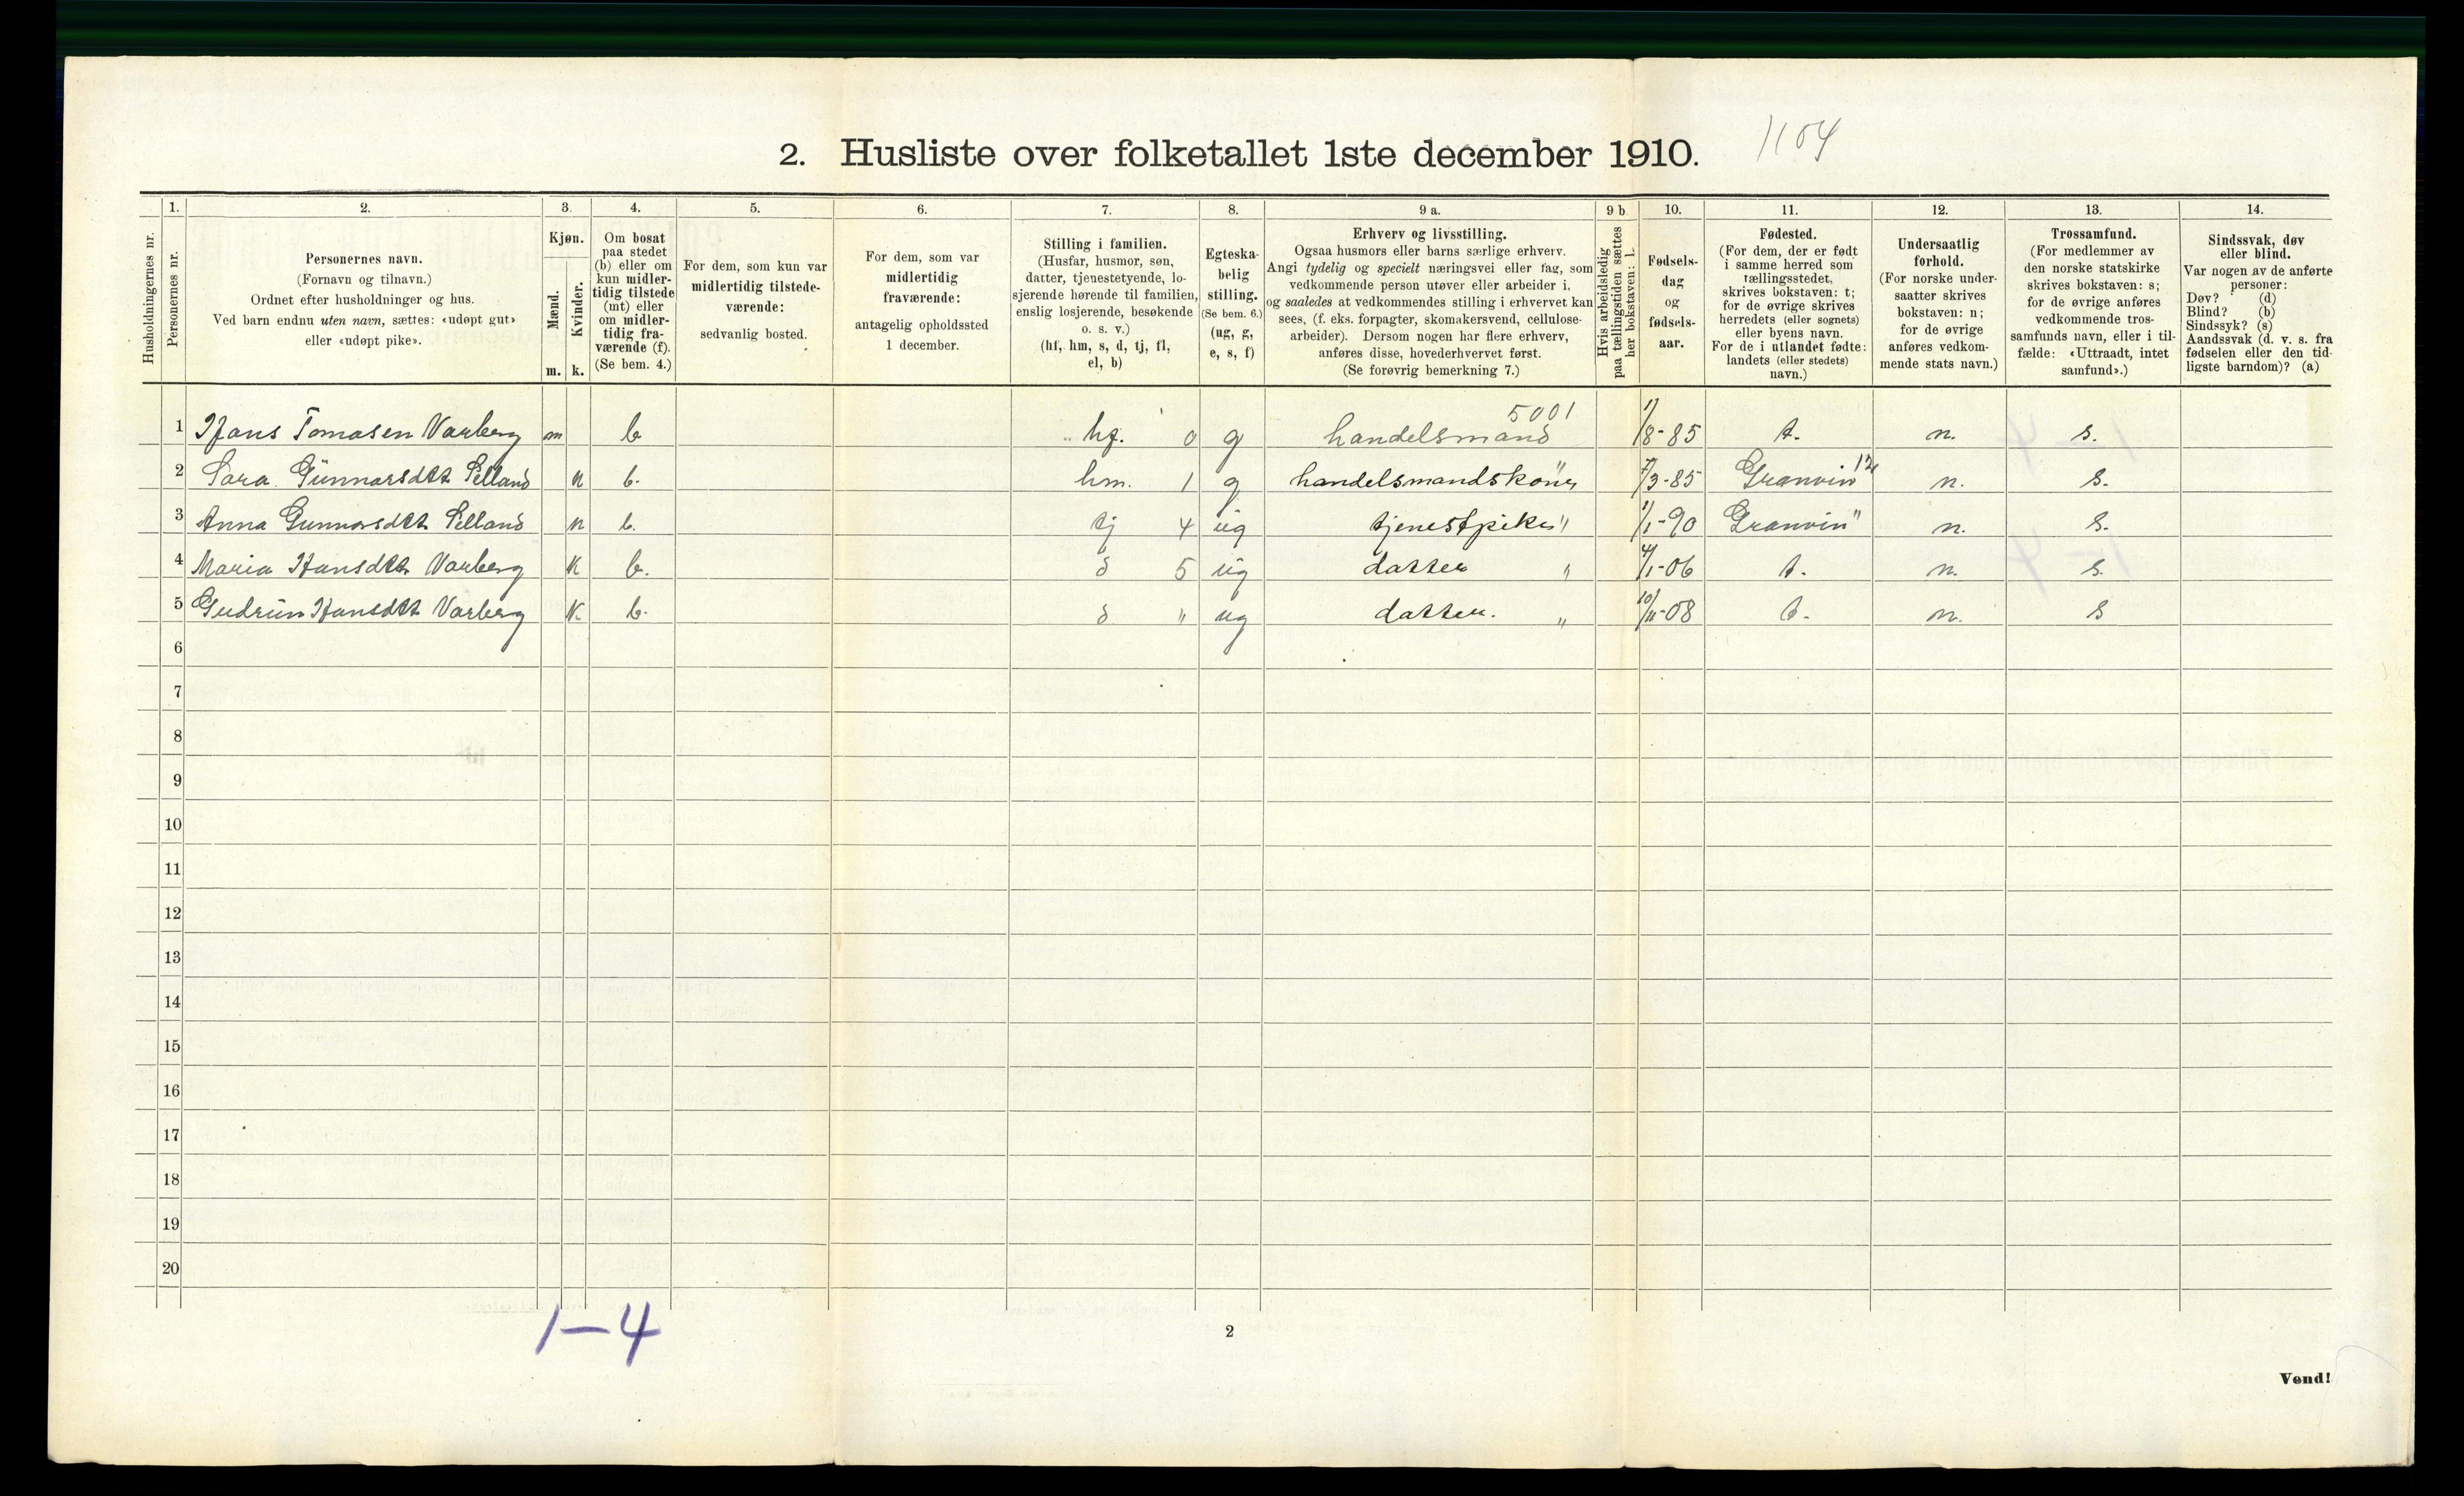 2. Husliste over folketallet 1ste december 1910. 1104
Husholdningernes nr.
1. Personernes nr.
2. Personernes navn.
(Fornavn og tilnavn.)
Ordnet efter husholdninger og hus.
Ved barn endnu uten navn, sættes: «udøpt gut»
eller «udøpt pike».
3. Kjøn.
Mænd. m.
Kvinder. k.
4. Om bosat
paa stedet
(b) eller om
kun midler-
tidig tilstede
(mt) eller
om midler-
tidig fra-
værende (f).
(Se bem. 4.)
5. For dem, som kun var
midlertidig tilstede-
værende:
sedvanlig bosted.
6. For dem, som var
midlertidig
fraværende:
antagelig opholdssted
1 december.
7. Stilling i familien.
(Husfar, husmor, søn,
datter, tjenestetyende, lo-
sjerende hørende til familien,
enslig losjerende, besøkende
o. s. v.)
(hf, hm, s, d, tj, fl,
el, b)
8. Egteska-
belig
stilling.
(Se bem. 6.)
(ug, g,
e, s, f)
9 a. Erhverv og livsstilling.
Ogsaa husmors eller barns særlige erhverv.
Angi tydelig og specielt næringsvei eller fag, som
vedkommende person utøver eller arbeider i,
og saaledes at vedkommendes stilling i erhvervet kan
sees, (f. eks. forpagter, skomakersvend, cellulose-
arbeider). Dersom nogen har flere erhverv,
anføres disse, hovederhvervet først.
(Se forøvrig bemerkning 7.)
9 b Hvis arbeidsledig
paa tællingstiden sættes
her bokstaven: l.
10. Fødsels-
dag
og
fødsels-
aar.
11. Fødested.
(For dem, der er født
i samme herred som
tællingsstedet,
skrives bokstaven: t;
for de øvrige skrives
herredets (eller sognets)
eller byens navn.
For de i utlandet fødte:
landets (eller stedets)
navn.)
12. Undersaatlig
forhold.
(For norske under-
saatter skrives
bokstaven: n;
for de øvrige
anføres vedkom-
mende stats navn.)
13. Trossamfund.
(For medlemmer av
den norske statskirke
skrives bokstaven: s;
for de øvrige anføres
vedkommende tros-
samfunds navn, eller i til-
fælde: «Uttraadt, intet
samfund».)
14. Sindssvak, døv
eller blind.
Var nogen av de anførte
personer:
Døv? (d)
Blind? (b)
Sindssyk? (s)
Aandssvak (d. v. s. fra
fødselen eller den tid-
ligste barndom)? (a)
5001
1 Hans Tomasen Varberg m b hf. 0 g handelsmand 1/8-85 t. n. s.
2 Sara Gunnarsdtt Selland k b. hm. 1 g handelsmandskone " 7/3-85 Granvin 12 n. s.
3 Anna Gunnarsdtt Selland k b. tj 4 ug tjenestpike " 1/1-90 Granvin " n. s.
4 Maria Hansdtt Varberg k b. d 5 ug datter " 4/1-06 t. n. s.
5 Gudrun Hansdtt Varberg k b. d " ug datter. " 10/11-08 t. n. s
6
7
8
9
10
11
12
13
14
15
16
17
18
19
20
1-4
2
Vend!